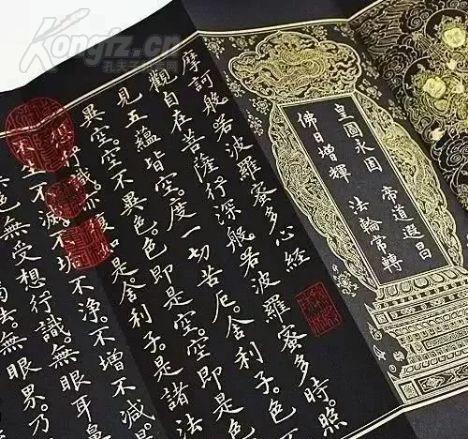 Kongfz.cn
皇圖永固 帝道遐昌
佛日增輝 法輪常轉
摩訶般若波羅蜜多心經
觀自在菩薩。行深般若波羅蜜多時。照
見五蘊皆空。度一切苦厄。舍利子。色
異空。空不異色。色即是空。空即是
想行識。亦復如是。舍利子。是諸法
生不滅。不垢不淨。不增不減。
色。無受想行識。無眼耳鼻
法。無眼界。乃